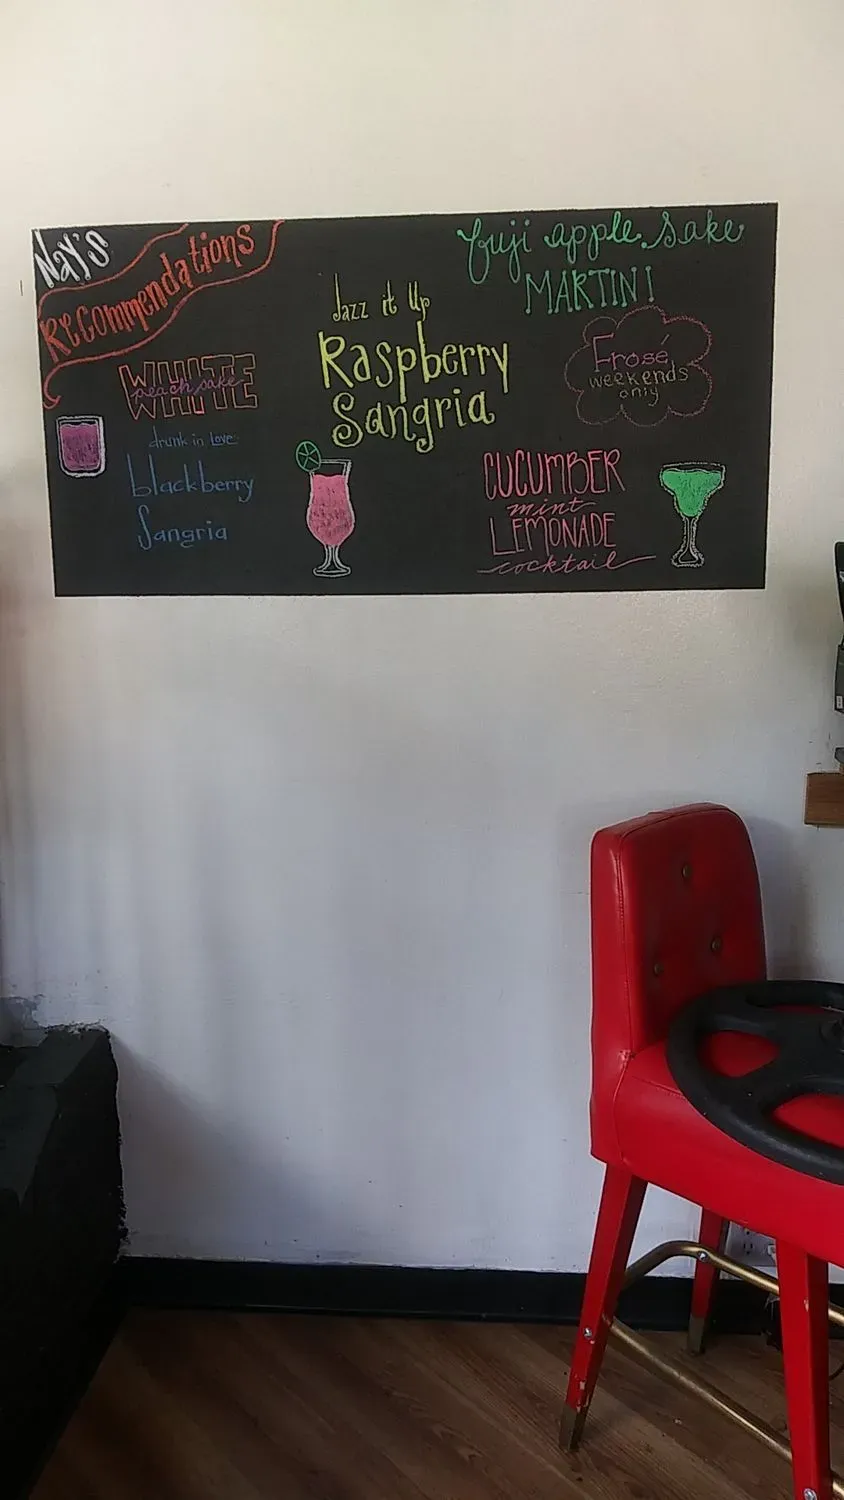 Nay's
Recommendations
WHITE
peach sake
drunk in Love:
blackberry
Sangria
Jazz it Up
Raspberry
Sangria
fuji apple sake
MARTINI
Frosé
weekends
only
CUCUMBER
mint
LEMONADE
cocktail